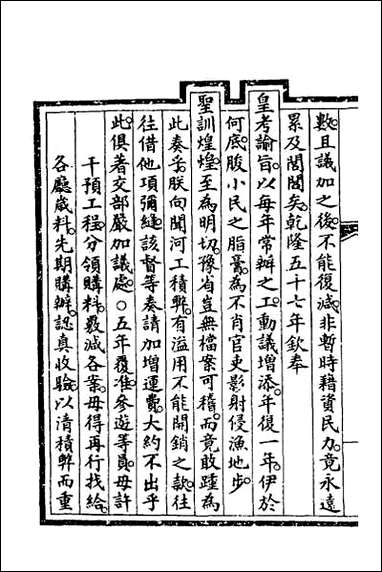 數且議加之後不能復減非暫時藉資民力竟永遠
累及閭閻矣乾隆五十七年欽奉
皇考諭旨以每年常辦之工動議增添年復一年伊於
何底朘小民之脂膏為不肖官吏影射侵漁地步
聖訓煌煌至為明切豫省豈無檔案可稽而竟敢踵為
此奏乎朕向聞河工積弊有濫用不能開銷之款往
往借他項彌縫該督等奏請加增運費大約不出乎
此俱著交部嚴加議處○五年覆准參遊等員毋許
干預工程分領購料覈減各案毋得再行找給
各廳歲料先期購辦認真收驗以清積弊而重